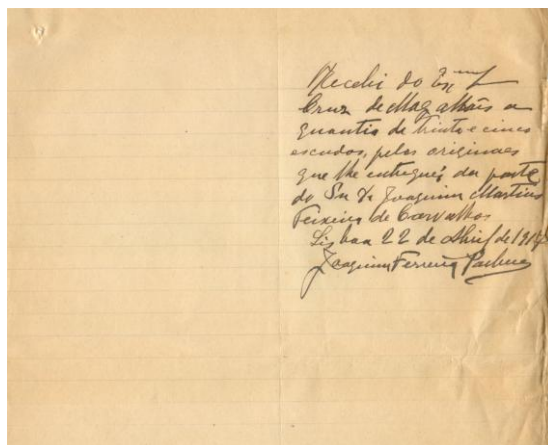 Recebi do Exmo Sr
Cruz de Magalhães a
quantia de trinta e cinco
escudos, pelos originaes
que lhe entreguei, da parte
do Snr Dr Joaquim Martins
Teixeira de Carvalho
Lisboa 22 de Abril de 191
Joaquim Ferreira Pacheco